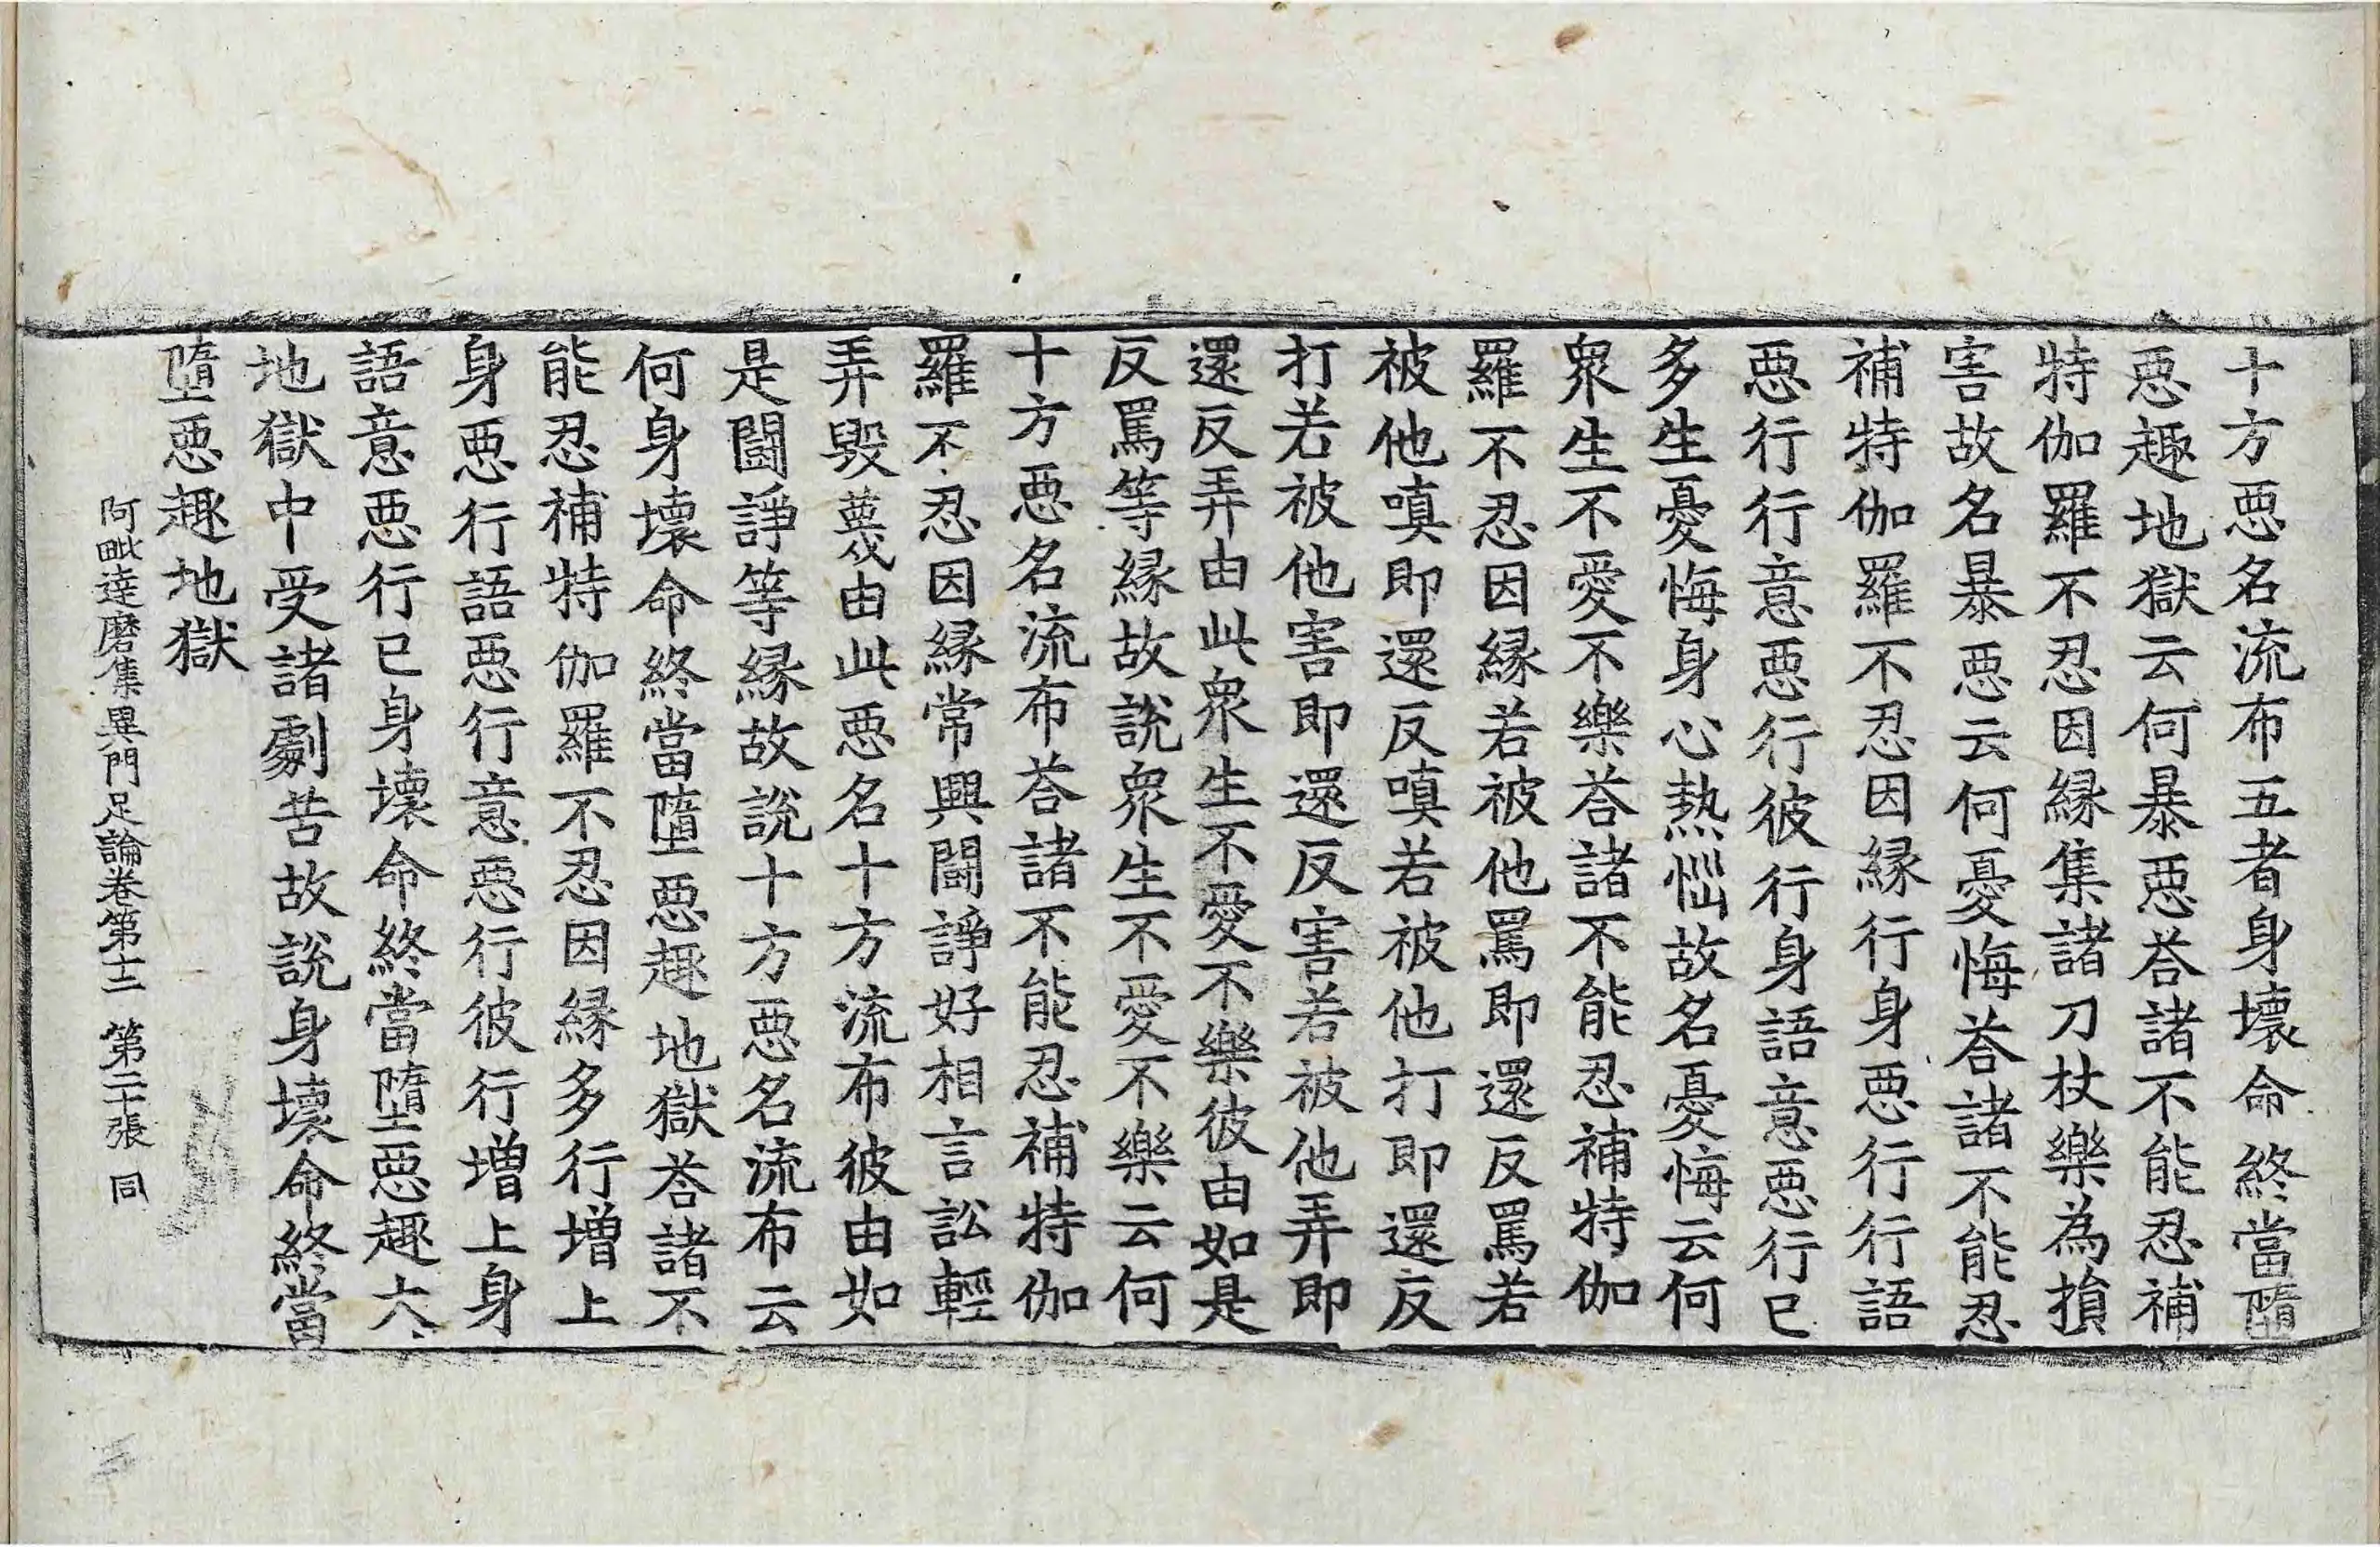 十方惡名流布五者身壞命終當墮
惡趣地獄云何暴惡荅諸不能忍補
特伽羅不忍因縁集諸刀杖樂為損
害故名暴惡云何憂悔荅諸不能忍
補特伽羅不忍因縁行身惡行行語
惡行行意惡行彼行身語意惡行已
多生憂悔身心熱惱故名憂悔云何
衆生不愛不樂荅諸不能忍補特伽
羅不忍因縁若被他罵即還反罵若
被他嗔即還反嗔若被他打即還反
打若被他害即還反害若被他弄即
還反弄由此衆生不愛不樂彼由如是
反罵等縁故説衆生不愛不樂云何
十方惡名流布荅諸不能忍補特伽
羅不忍因縁常興鬪諍好相言訟輕
弄毀蔑由此惡名十方流布彼由如
是鬪諍等縁故説十方惡名流布云
何身壞命終當墮惡趣地獄荅諸不
能忍補特伽羅不忍因縁多行增上
身惡行語惡行意惡行彼行增上身
語意惡行已身壞命終當墮惡趣大
地獄中受諸劇苦故説身壞命終當
墮惡趣地獄
阿毗達磨集異門足論卷第十三 第二十張 同